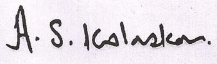 A. S. Kolaskar.